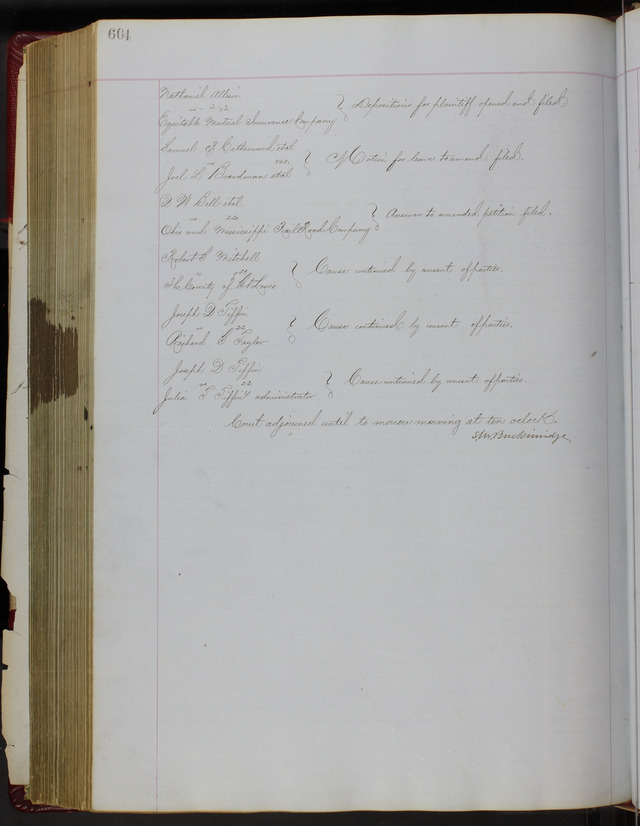 604
Nathaniel Allein
vs 262 } Depositions for plaintiff opened and filed
Equitable Mutual Insurance Company
Samuel F Catherwood et al
vs } Motion for leave to amend filed.
Joel H Boardman et al
D W Bell et al
vs } Answer to amended petition filed.
Ohio and Mississippi Rail Road Company
Robert S Mitchell
vs } Cause continued by consent of parties.
The County of St Louis
Joseph D Tiffin
vs 22 } Cause continued by consent of parties.
Richard S Taylor
Joseph D Tiffin
vs 22 } Cause continued by consent of parties.
Julia T Tiffin administrator
Court adjourned until to morrow morning at ten oclock.
S M Breckinridge